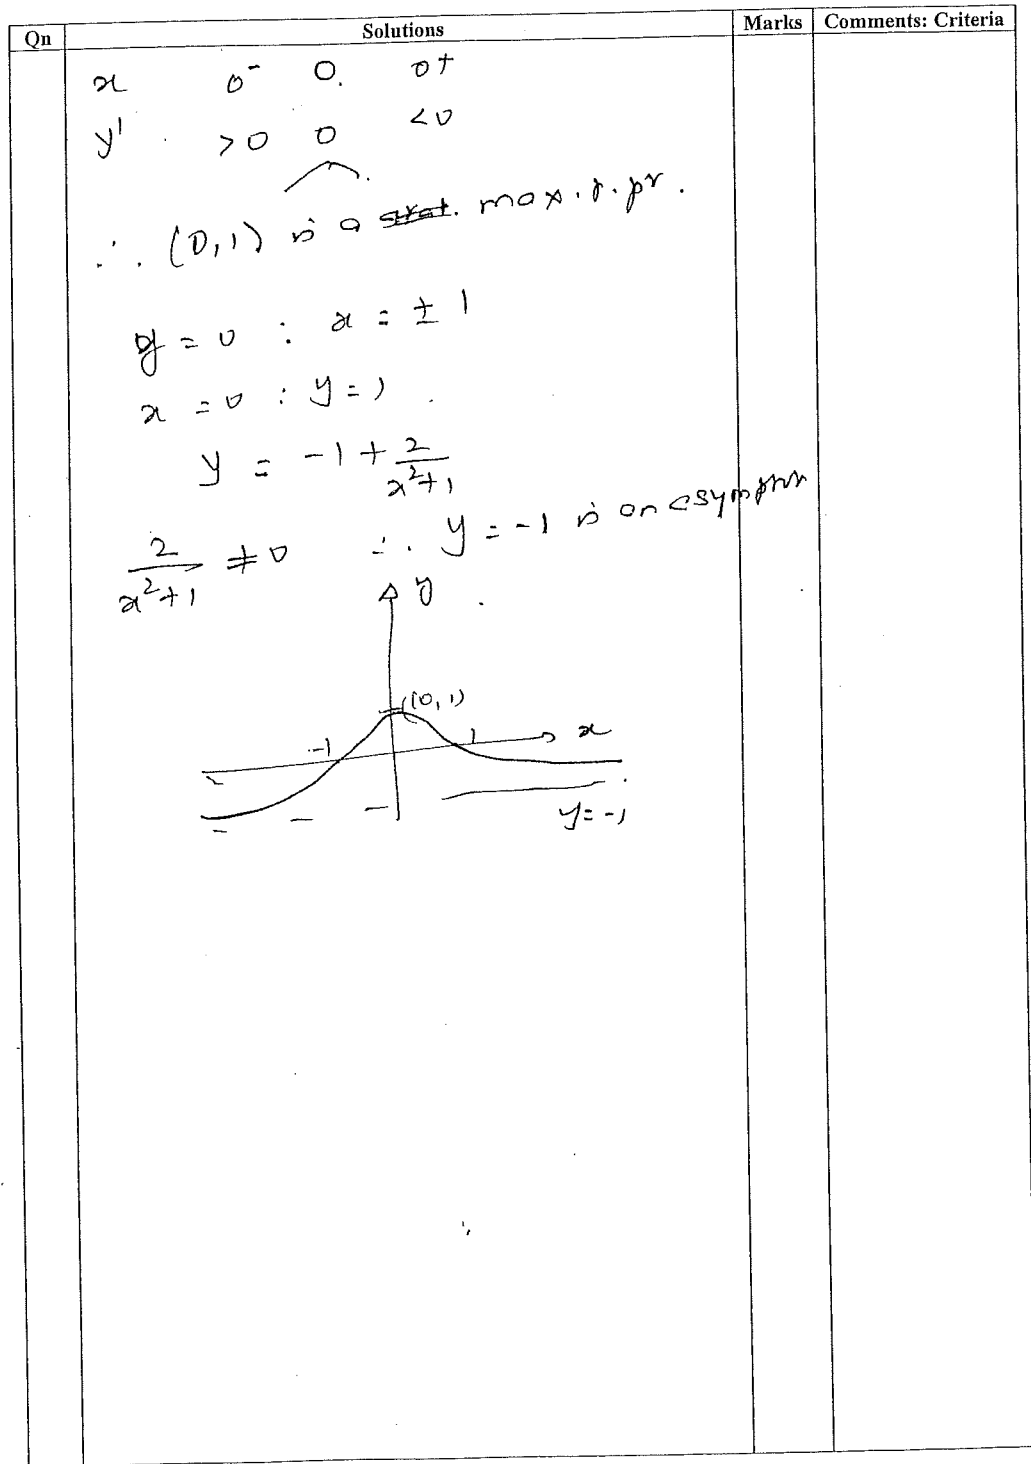 Qn Solutions Marks Comments: Criteria
x 0⁻ 0. 0⁺
y' >0 0 <0
∴ (0,1) is a stat. max. t. pt.
y = 0 : x = ± 1
x = 0 : y = 1
y = -1 + 2/(x²+1)
2/(x²+1) ≠ 0 ∴ y = -1 is an
y
(0,1)
-1 1 x
y = -1